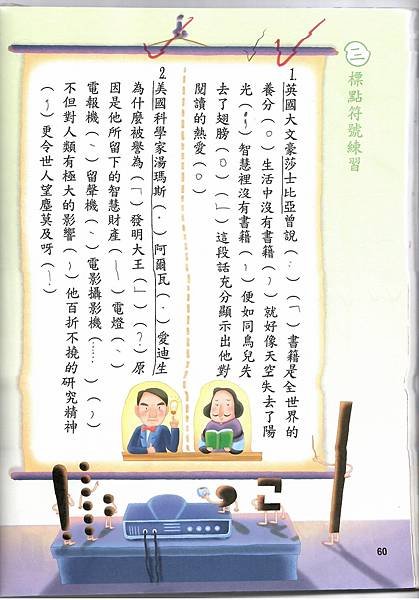 三 標點符號練習
1. 英國大文豪莎士比亞曾說（：）（「）書籍是全世界的
養分（。）生活中沒有書籍（，）就好像天空失去了陽
光（；）智慧裡沒有書籍（，）便如同鳥兒失
去了翅膀（。）（」）這段話充分顯示出他對
閱讀的熱愛（。）
2. 美國科學家湯瑪斯（‧）阿爾瓦（‧）愛迪生
為什麼被譽為（「）發明大王（」）（？）原
因是他所留下的智慧財產（—）電燈（、）
電報機（、）留聲機（、）電影攝影機（……）（，）
不但對人類有極大的影響（，）他百折不撓的研究精神
（，）更令世人望塵莫及呀（！）
60